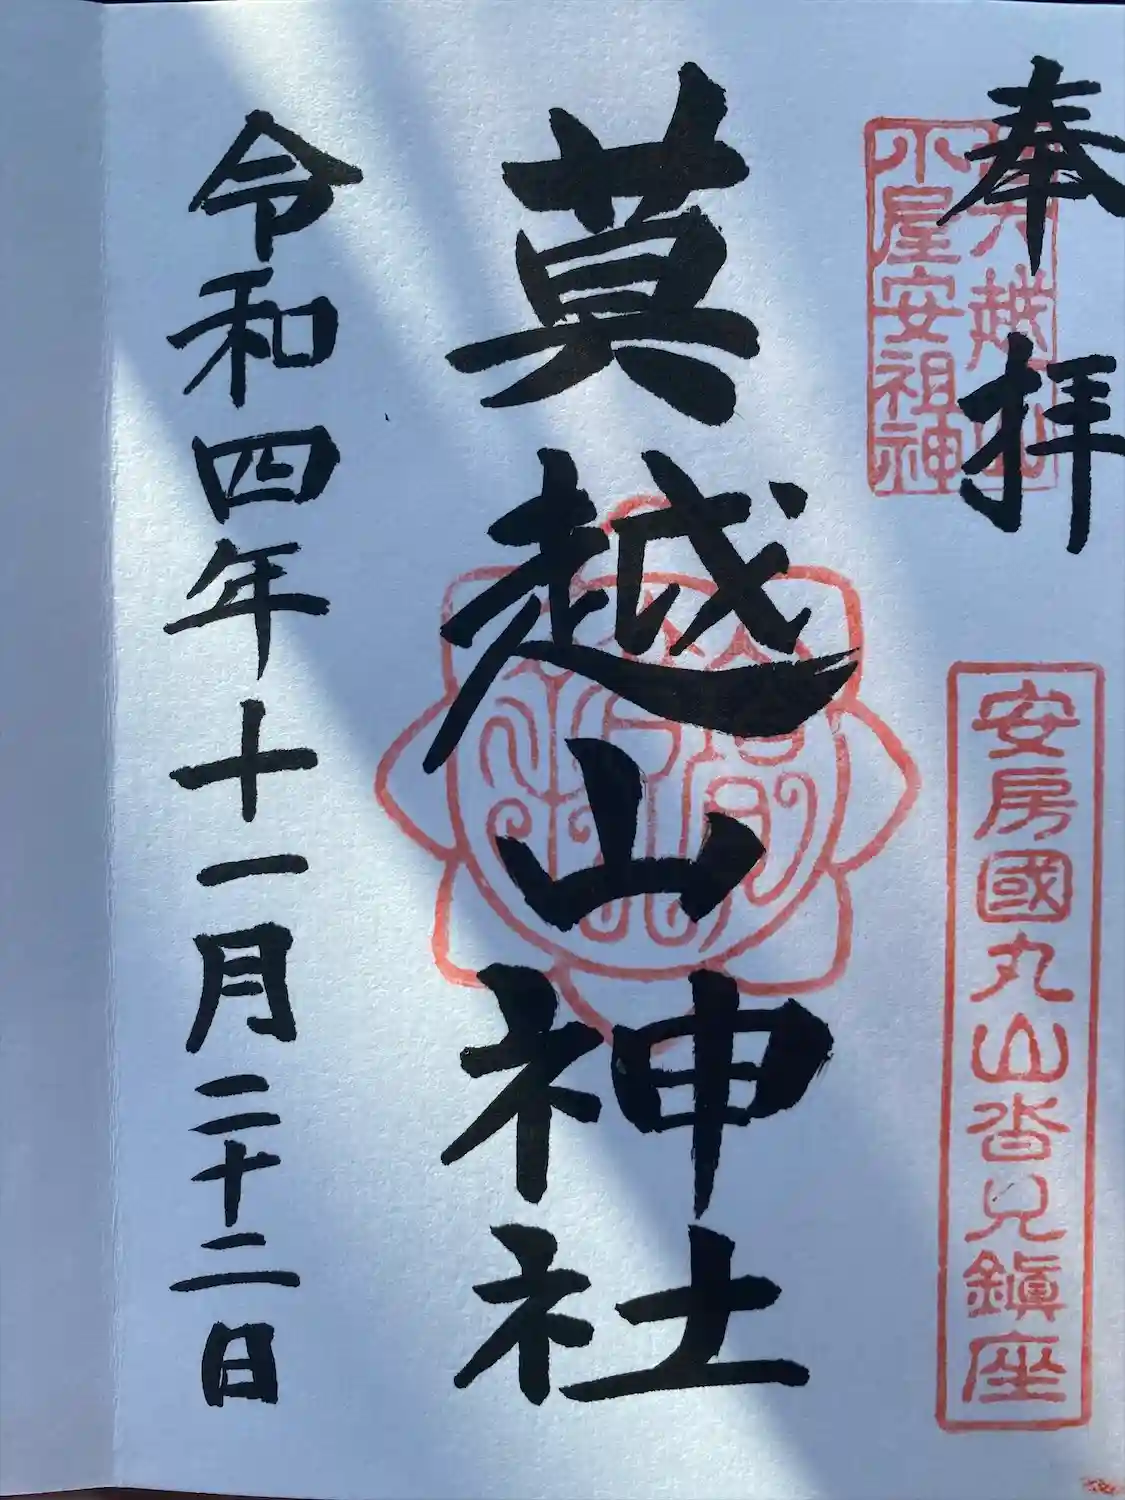 奉拝
莫越山
小屋安祖神
安房國丸山沓見鎮座
莫越山神社
令和四年十一月二十二日